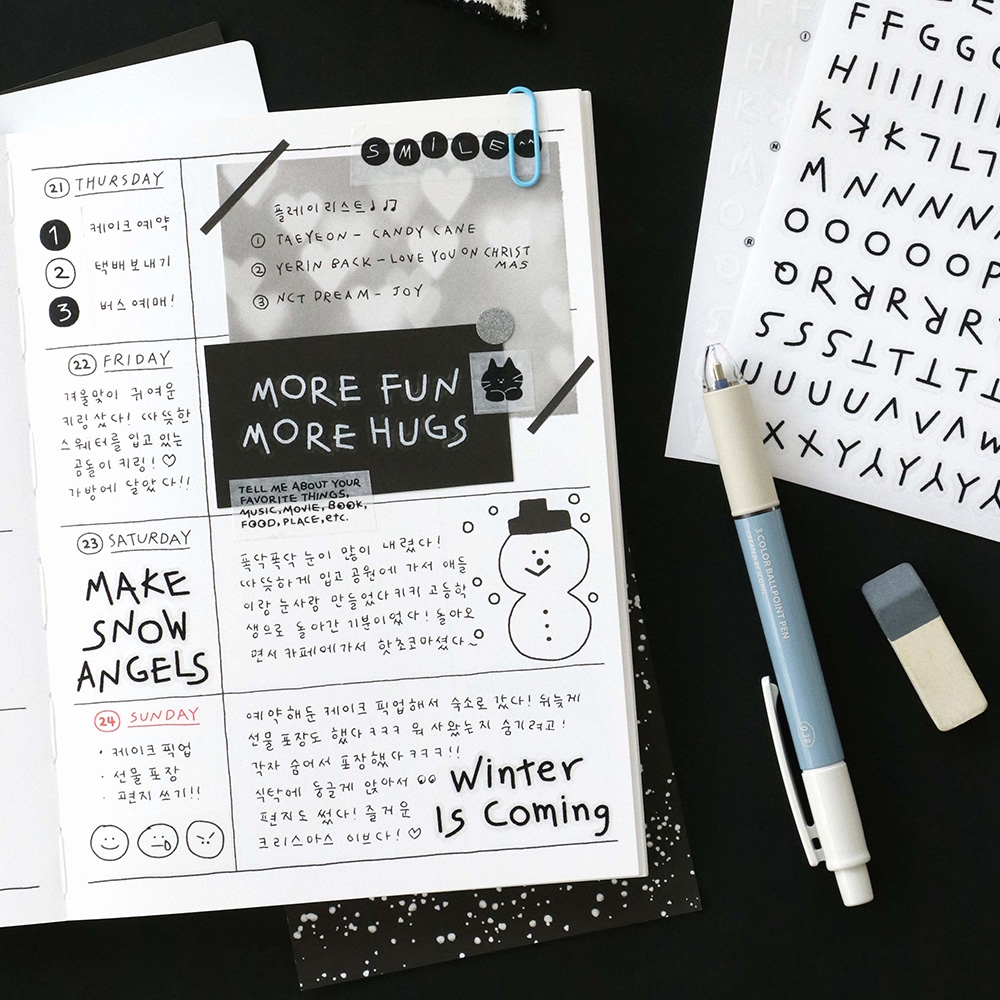 SMILE ^^
21 THURSDAY
1 케이크 예약
2 택배 보내기
3 버스 예매!
플레이리스트♩♫
① TAEYEON - CANDY CANE
② YERIN BACK - LOVE YOU ON CHRIST
MAS
③ NCT DREAM - JOY
22 FRIDAY
겨울맞이 귀여운
키링 샀다! 따뜻한
스웨터를 입고 있는
곰돌이 키링! ♡
가방에 달았다!!
MORE FUN
MORE HUGS
TELL ME ABOUT YOUR
FAVORITE THINGS,
MUSIC, MOVIE, BOOK,
FOOD, PLACE, etc.
23 SATURDAY
MAKE
SNOW
ANGELS
폭닥폭닥 눈이 많이 내렸다!
따뜻하게 입고 공원에 가서 애들
이랑 눈사람 만들었다키키 고등학
생으로 돌아간 기분이었다! 돌아오
면서 카페에가서 핫초코마셨다~
24 SUNDAY
· 케이크 픽업
· 선물 포장
· 편지 쓰기!!
예약해둔 케이크 픽업해서 숙소로 갔다! 뒤늦게
선물 포장도 했다 ㅋㅋㅋ 뭐 사왔는지 숨기려고!
각자 숨어서 포장했다ㅋㅋㅋ!!
식탁에 둥글게 앉아서
편지도 썼다! 즐거운
크리스마스 이브다! ♡
Winter
Is Coming
3 COLOR BALLPOINT PEN
CREATED BY ICONIC
0.38
FFGGG
HIIIIIII
KKKLL
WNNNN
OOOOOP
QRRRR
SSSSTTT
UUUUVVW
XXYYYY
I
N
R